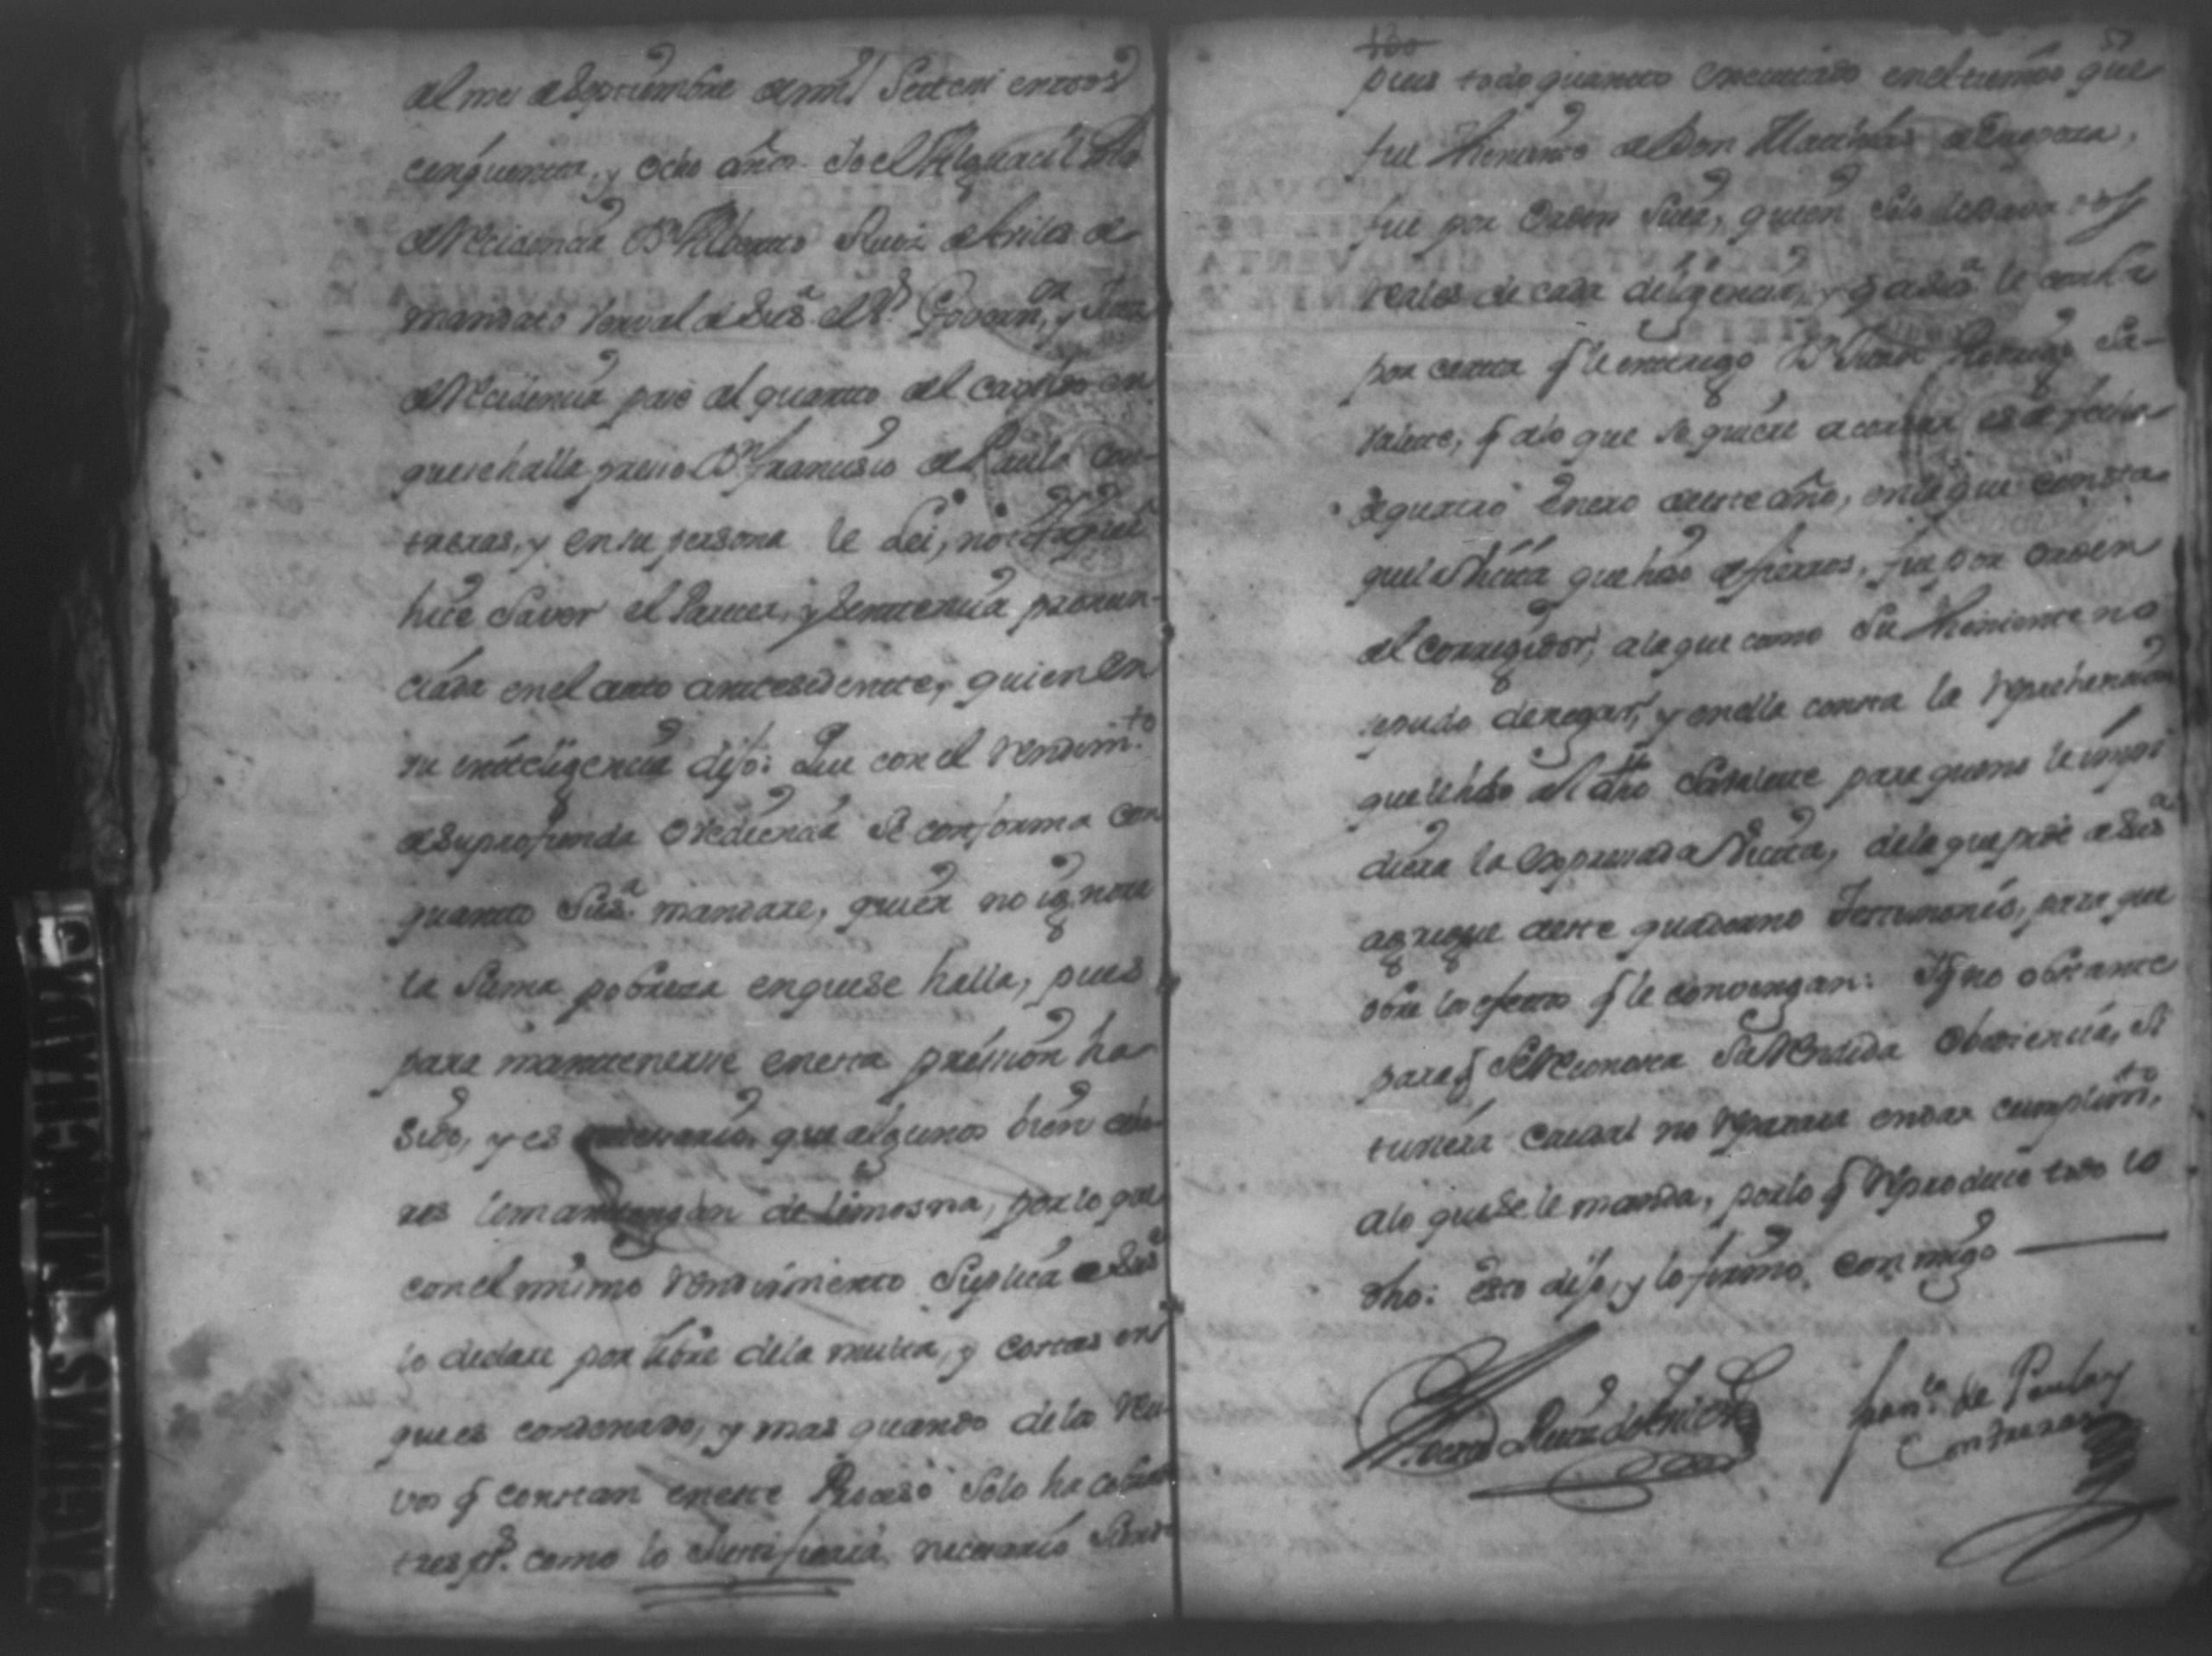 del mes de Septiembre de mil Setteci entoos
cinquenta, y ocho años. Io el Alguacil
de Recidencia Dn Alberto Ruiz de de
mandato verval de Susa el Sr Governor, y Juez
de Recidencia pasé al quarto del Cavildo en
que se halla preso Dn francisco de Paula Con-
treras, y en su persona le Lei, notifiqué
hice Saver el Parecer, y Sentencia pronun-
ciada en el auto antesedente, quien en
su inteligencia dijo: Que con el rendimto
de su profunda obediencia se conforma con
quanto Susa mandare, quien no ignora
la Suma pobreza en que se halla, pues
para mantenerse en esta prission ha
sido, y es nesesario, que algunos bien echo-
res lo mantengan de limosna, por lo que
con el mismo rendimiento Suplica a Susa
lo declare por libre de la multa, y costas en
que es condenado, y mas quando de los
vos q constan en este Proceso Solo ha cobrado
tres ps. como lo Justificará, necesario Siendo
57
pues todo quanto executado en el tiempo que
fue Theniente de Don Mathias de
fue por orden Suia, quien Solo le dava dos
reales de cada diligencia, y q a Susa le consta
por carta q le entrego Dn Juan Rodrigo Sa-
rriente, q a lo que se quiere acordar es de fecha
de quatro Enero de este año, en la que consta
que la Vicita que hiso de fierros, fue por orden
del Corregidor, a la que como Su Theniente no
se pudo denegar, y en ella consta la reprehencion
que le hiso al dho Sarriente para que no le impi
diera la expresada Vicita, de la que pide a Susa
agregue a este quaderno Testimonio, para que
obre los efectos q le convengan: Y q no obstante
para q Se Reconosca Su Rendida obediencia, si
tuviera caudal no reparara en dar cumplimto,
a lo que se le manda, por lo q reproduce todo lo
dho: esto dijo, y lo firmo, con migo
Alverto Ruiz de
franco de Paula y
Contreras
PAGINAS MANCHADAS